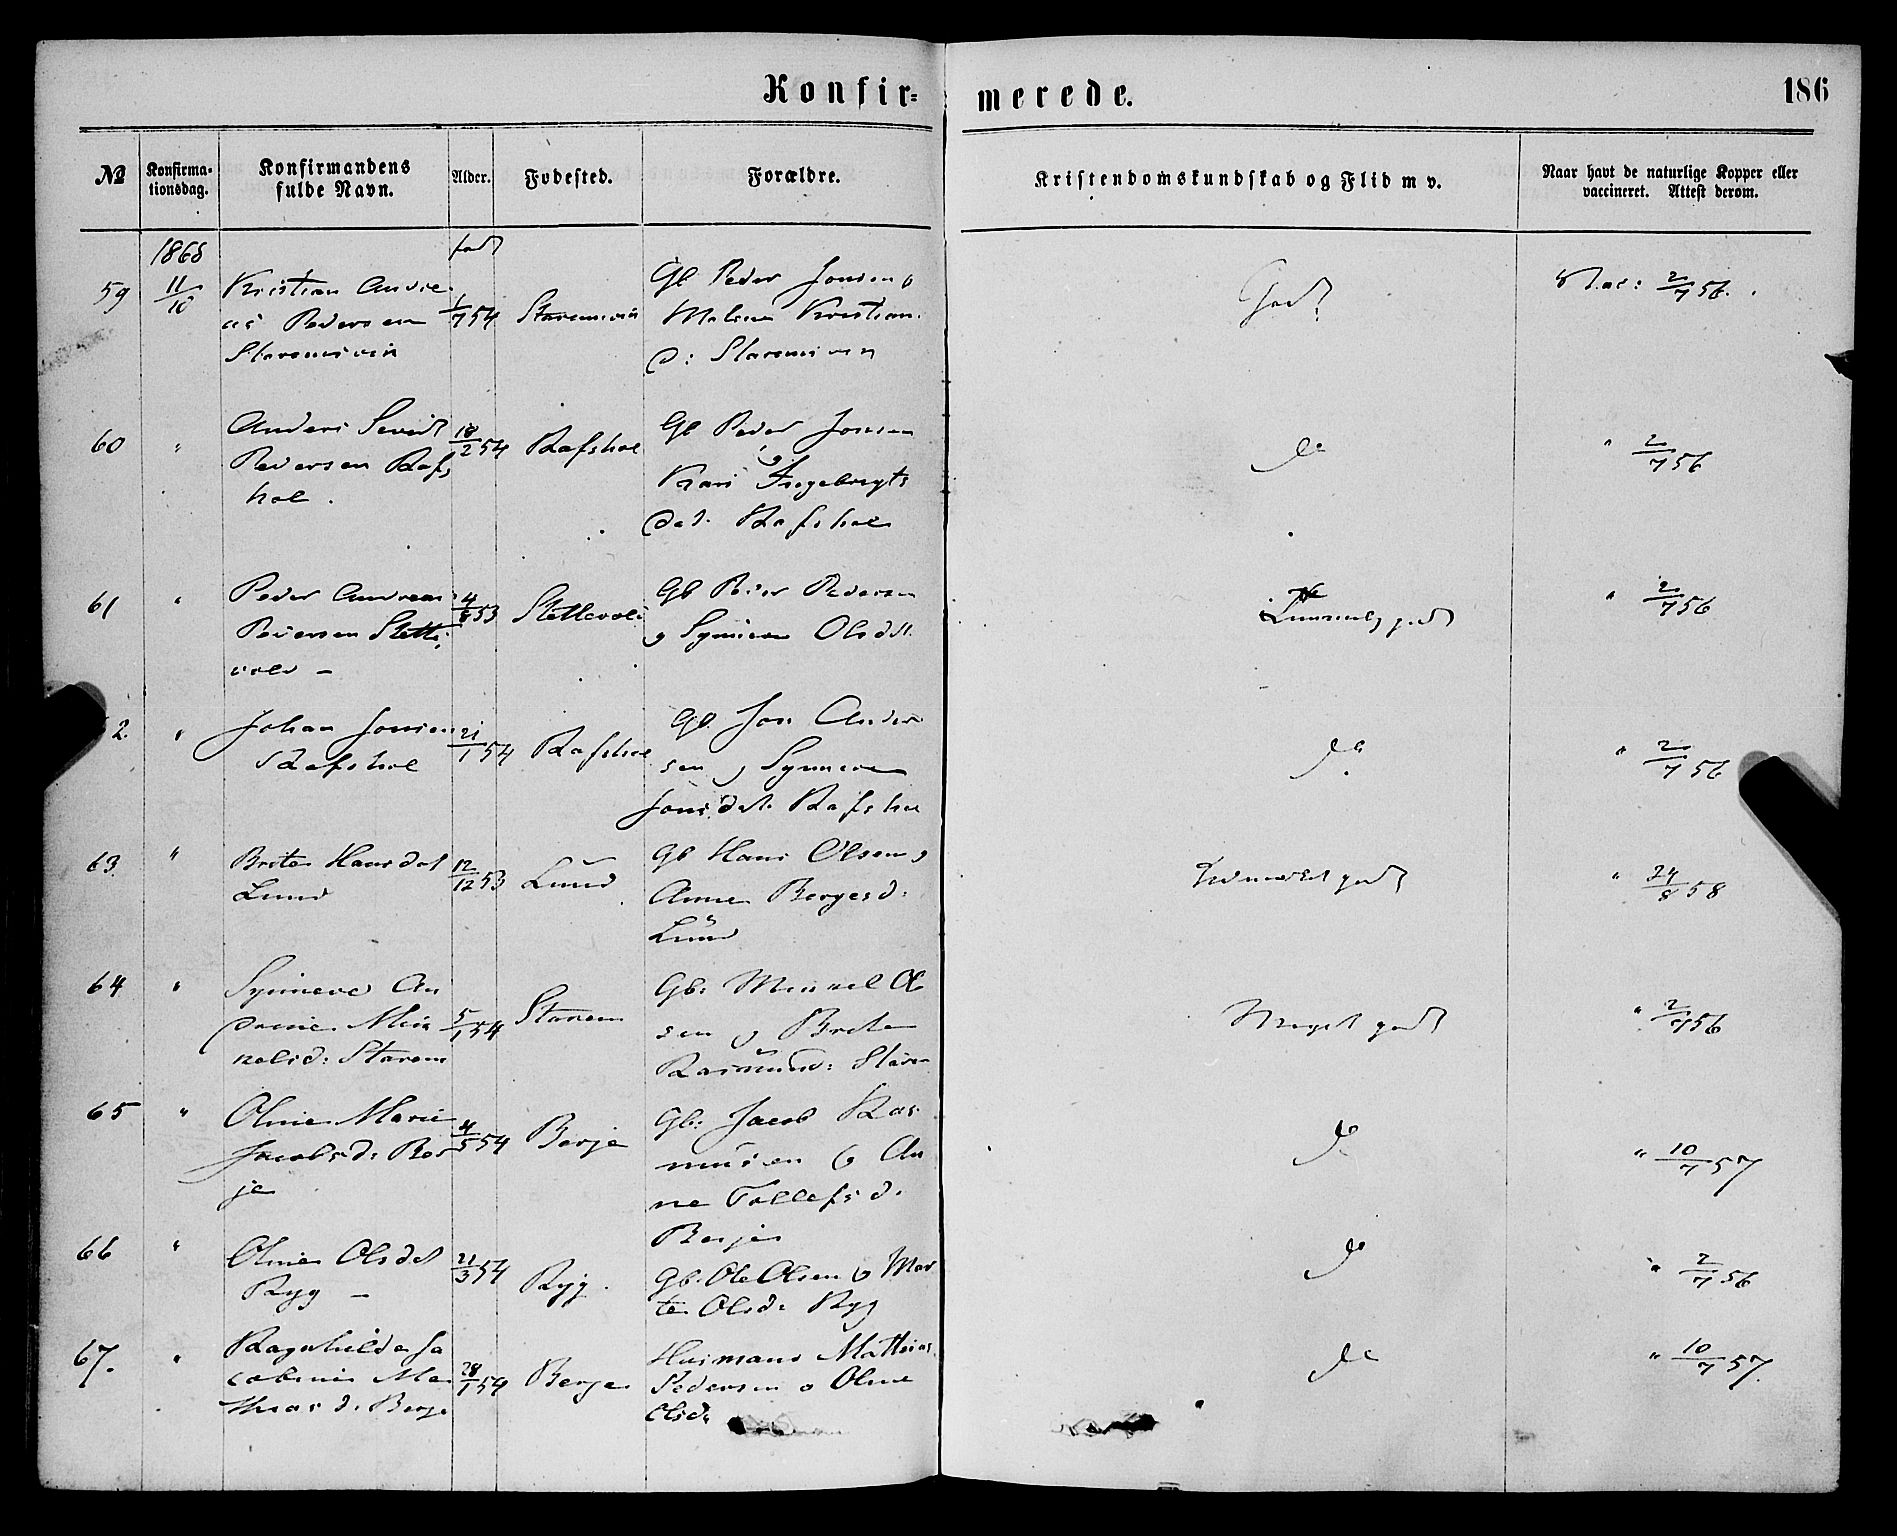 Konfir=
merede.
186
№
Konfirma-
tionsdag.
Konfirmandens
fulde Navn.
Alder.
Fødested.
Forældre.
Kristendomskundskab og Flid m v.
Naar havt de naturlige Kopper eller
vaccineret. Attest derom.
1868
født
59
11/10
Kristian Andre
as Pedersen
1/7 54
Gb Peder Jonsen o
Malene Kristian
d:
Godt
Vac: 2/7 56.
60
"
Anders Sevrit
Pedersen Rafs
hol.
18/2 54
Rafshol
Gb Peder Jonsen
o
Kari Ingebregts
dat. Rafshol
do
" 2/7 56
61
"
Peder Andreas
Pedersen Stette
vold -
4/8 53
Stettevold
Gb Peder Pedersen
o Synneve Olsdt.
godt
" 2/7 56
2.
"
Johan Jonsen
Rafshol
21/1 54
Rafshol
Gb. Jon Ander
sen o Synneve
Jonsdat. Rafshol
do
" 2/7 56
63.
"
Brite Hansdat
Lund
12/12 53
Lund
Gb Hans Olsen o
Anne Bergesd:
Lund
Udmærket godt
" 24/8 58
64
"
Synneve An
drine Min
kelsd: Starem
5/1 54
Starem
Gb: Minkel Ol
sen o Brite
Rasmusd: Starem
Meget godt
" 2/7 56
65
"
Oline Marie
Jacobsd: Ber
je
4/5 54
Berje
Gb: Jacob Ras
musen o An
ne Tollefsd.
Berje
do
" 10/7 57
66
"
Oline Olsdat
Ryg -
21/3 54
Ryg.
Gb. Ole Olsen o Mar
te Olsd: Ryg
do
" 2/7 56
67.
"
Ragnhilde Ja
cobine Ma
thiasd. Berje
28/1 54
Berje
Husmand Mathias
Pedersen o Oline
Olsd:
do
" 10/7 57.